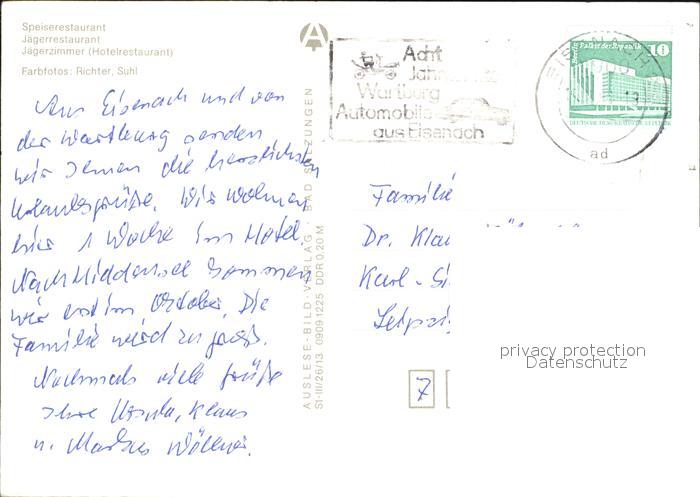 Speiserestaurant
Jägerrestaurant
Jägerzimmer (Hotelrestaurant)
Farbfotos: Richter, Suhl
Aus Eisenach und von
der Wartburg senden
wir Ihnen die herzlichsten
Urlaubsgrüße. Wir wohnen
hier 1 Woche im Hotel.
Nach Hiddensee kommen
wir erst im Oktober. Die
Familie wird zu groß.
Nochmals viele Grüße
Ihre Ursula, Klaus
u. Markus
AUSLESE-BILD-VERLAG BAD SALZUNGEN
SI-III/26/13 09091225 DDR 0,20 M
Acht
Wartburg
Automobile
aus Eisenach
EISENACH
ad
Berlin, Palast der Republik 10
DEUTSCHE DEMOKRATISCHE REPUBLIK
Familie
Dr. Klau
Karl-Si
Leipzi
7
privacy protection
Datenschutz